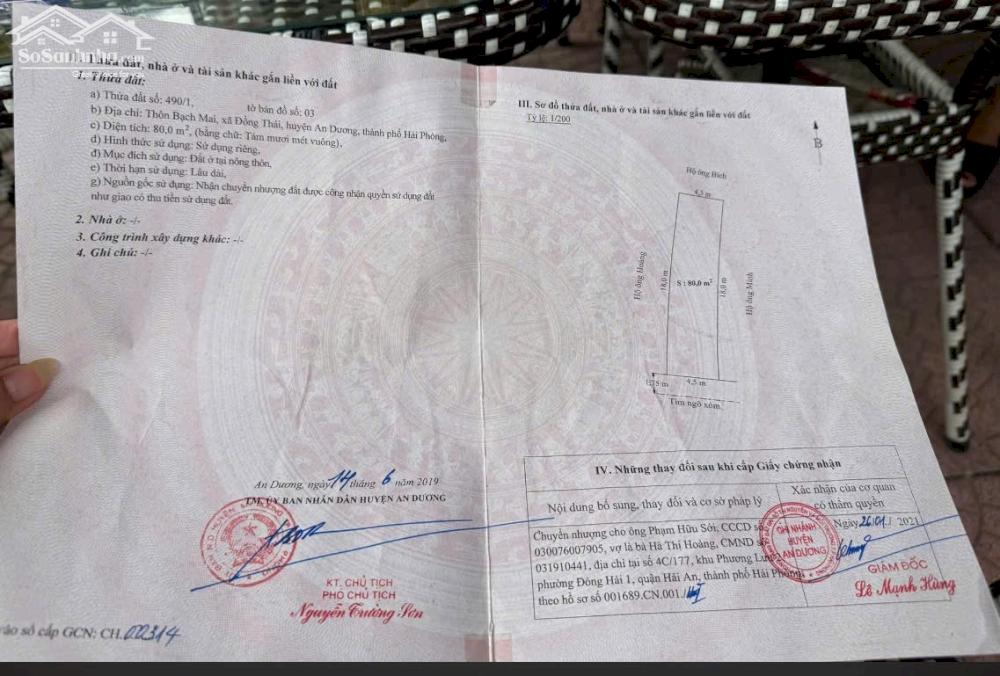 SoSanhNha.com
Thửa đất, nhà ở và tài sản khác gắn liền với đất
1. Thửa đất:
a) Thửa đất số: 490/1, tờ bản đồ số: 03
b) Địa chỉ: Thôn Bạch Mai, xã Đồng Thái, huyện An Dương, thành phố Hải Phòng,
c) Diện tích: 80,0 m², (bằng chữ: Tám mươi mét vuông),
d) Hình thức sử dụng: Sử dụng riêng,
đ) Mục đích sử dụng: Đất ở tại nông thôn,
e) Thời hạn sử dụng: Lâu dài,
g) Nguồn gốc sử dụng: Nhận chuyển nhượng đất được công nhận quyền sử dụng đất
như giao có thu tiền sử dụng đất.
2. Nhà ở: -/-
3. Công trình xây dựng khác: -/-
4. Ghi chú: -/-
An Dương, ngày 14 tháng 6 năm 2019
TM. ỦY BAN NHÂN DÂN HUYỆN AN DƯƠNG
KT. CHỦ TỊCH
PHÓ CHỦ TỊCH
Nguyễn Trường Sơn
vào sổ cấp GCN: CH.00314
III. Sơ đồ thửa đất, nhà ở và tài sản khác gắn liền với đất
Tỷ lệ: 1/200
B
Hộ ông Bích
4,5 m
Hộ ông Hoàng
18,0 m
S : 80,0 m²
18,0 m
Hộ ông Minh
4,5 m
Tim ngõ xóm
IV. Những thay đổi sau khi cấp Giấy chứng nhận
Nội dung bổ sung, thay đổi và cơ sở pháp lý
Xác nhận của cơ quan
có thẩm quyền
Chuyển nhượng cho ông Phạm Hữu Sới, CCCD số
030076007905, vợ là bà Hà Thị Hoàng, CMND số
031910441, địa chỉ tại số 4C/177, khu Phương Lưu,
phường Đông Hải 1, quận Hải An, thành phố Hải Phòng
theo hồ sơ số 001689.CN.001./
Ngày 26/01/2021
CHI NHÁNH
HUYỆN
AN DƯƠNG
GIÁM ĐỐC
Lê Mạnh Hùng